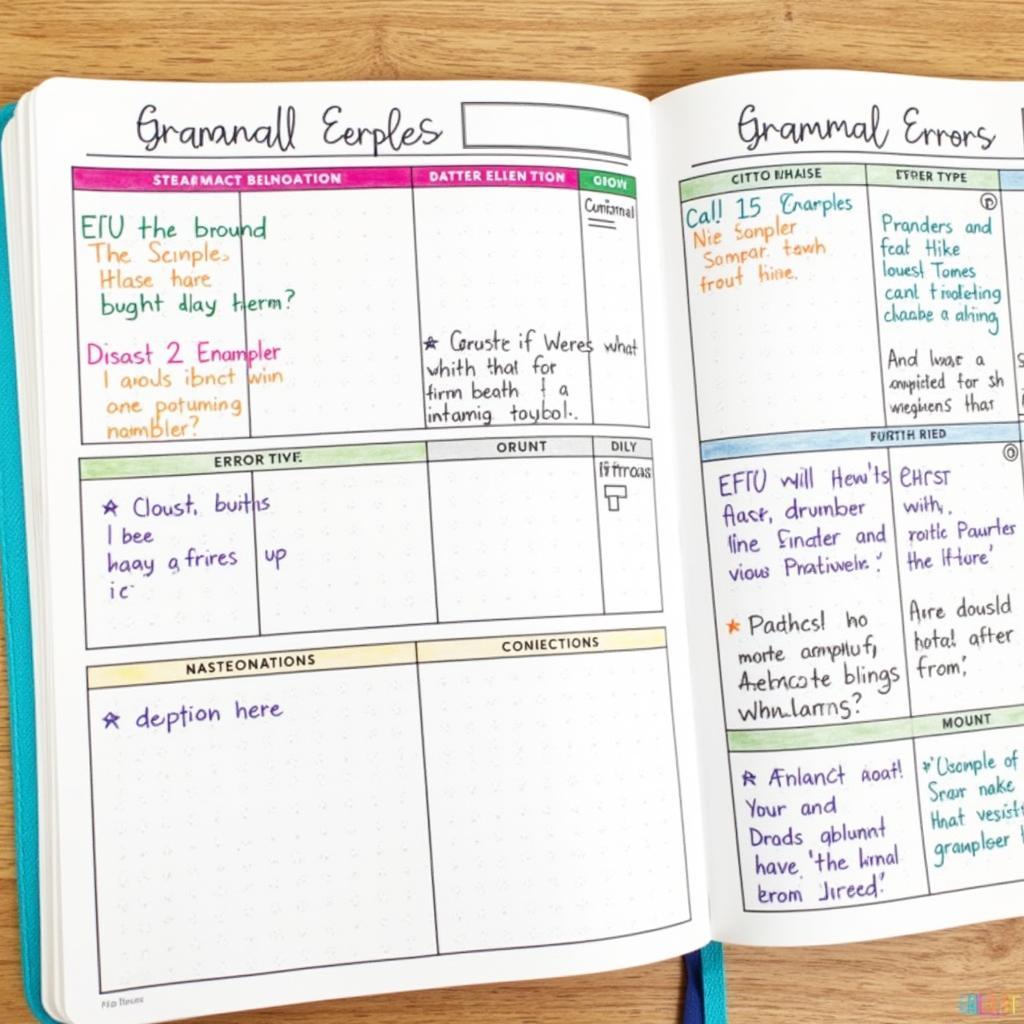 Gramnall Eerples
STEARMACT BELNOATION
DATTER ELLEN TION
GROW
EIU the bround
The Scimple.
Hlase hare
bught dlay herm?
Disast 2 Enampler
I aiouls ibnct win
one potuming
nambler?
Cumiamal
★ Coruste if Weres what
whith that for
firm beath I a
intamig toybol..
ERROR TIVE.
ORUNT
DILY
★ Cloust, buiths
I bee
haay a frires up
ic
NASTEONATIONS
CONIECTIONS
★ deption here
Grammal Errors
CITTO WHAISE
ETRER TYPE
Call 15 Enarples
Nie Sompler
Sompar. tawh
frout hine.
Pranders and
fcat Hike
louest Tomes
cant Fiodeting
chaabe a ahing
And lwar a
ampicted for sh
wegiuens that
FURTH RIED
EFIU will Hew'ts
flast, drumber
line Einder and
vious Pratiwelr.'
EHRST
with,.
rotic Paurter
the Ifture'
★ Padhcs! ho
morte amplluf,
Aebncote blings
Whn.larns?
Arre dousld
hotal after
from,'
MOUNT
★ Anlanct aoat!
Your and
Drads gblunnt
have, 'the lirnal
krom Jireed!'
*'Usomple of
Srour nake
Hhat vesist
grampleer t